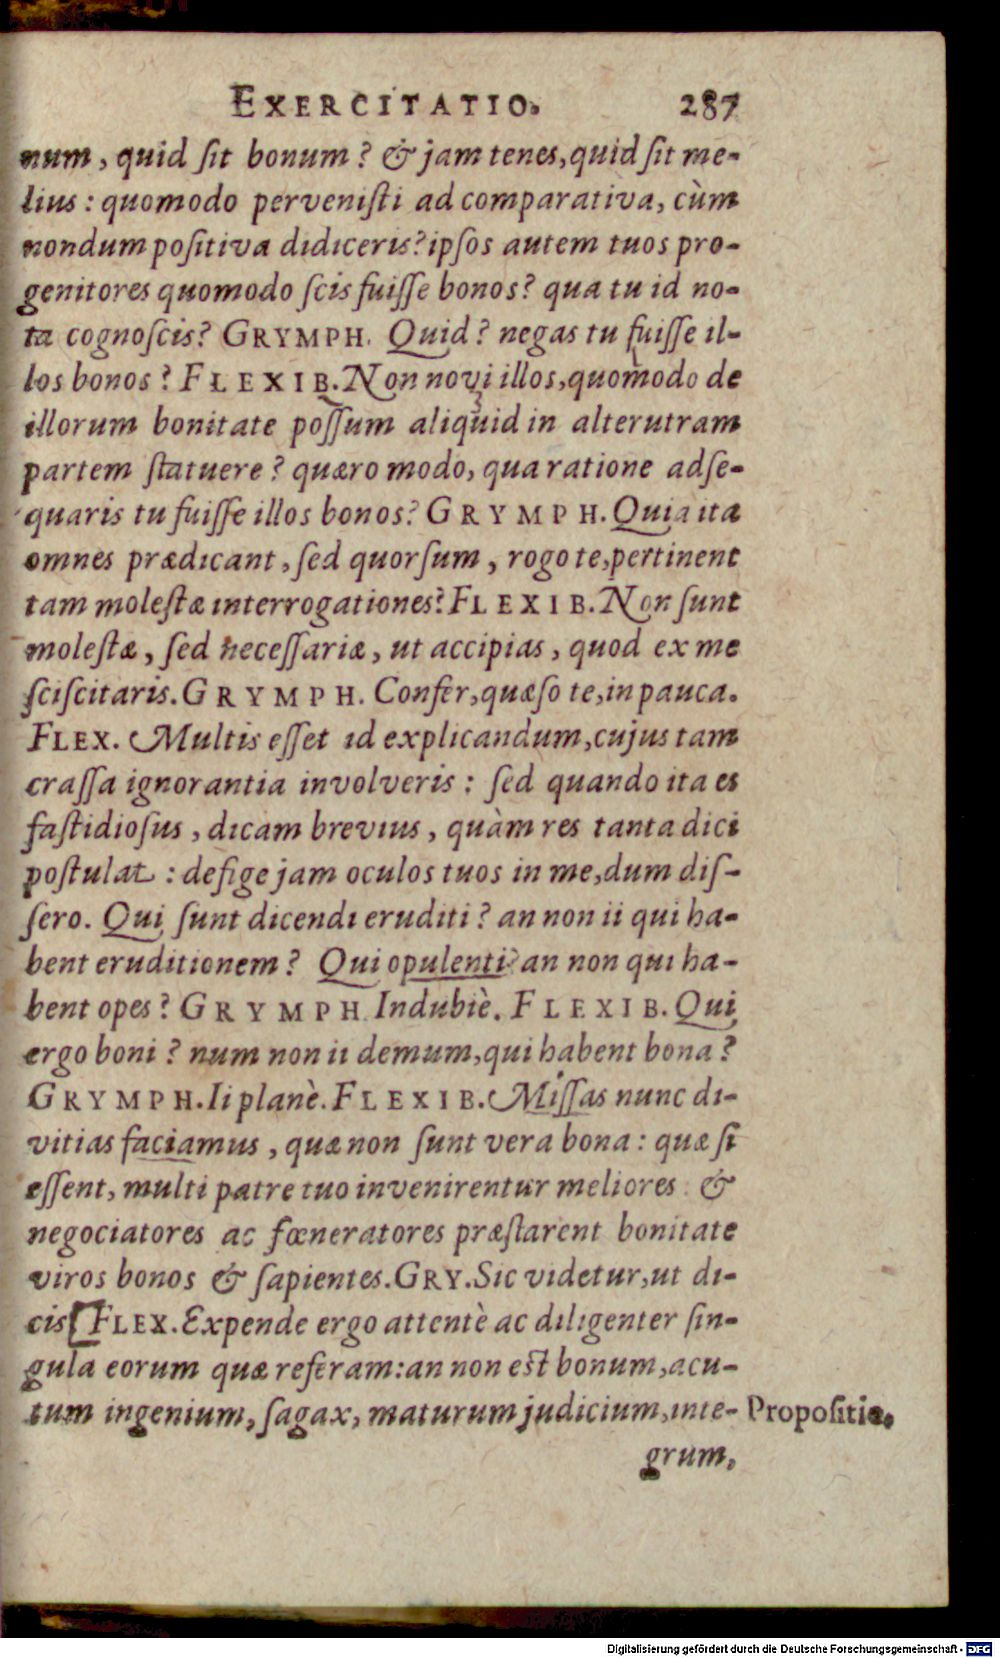 EXERCITATIO. 287
num, quid ſit bonum? & jam tenes, quid ſit me-
lius: quomodo perveniſti ad comparativa, cùm
nondum poſitiva didiceris? ipſos autem tuos pro-
genitores quomodo ſcis fuiſſe bonos? qua tu id no-
ta cognoſcis? GRYMPH. Quid? negas tu fuiſſe il-
los bonos? FLEXIB. Non novi illos, quomodo de
illorum bonitate poſſum aliquid in alterutram
partem ſtatuere? quæro modo, qua ratione adſe-
quaris tu fuiſſe illos bonos? GRYMPH. Quia ita
omnes prædicant, ſed quorſum, rogo te, pertinent
tam moleſtæ interrogationes? FLEXIB. Non ſunt
moleſtæ, ſed neceſſariæ, ut accipias, quod ex me
ſciſcitaris. GRYMPH. Confer, quæſo te, in pauca.
FLEX. Multis eſſet id explicandum, cujus tam
craſſa ignorantia involveris: ſed quando ita es
faſtidioſus, dicam brevius, quàm res tanta dici
poſtulat: defige jam oculos tuos in me, dum diſ-
ſero. Qui ſunt dicendi eruditi? an non ii qui ha-
bent eruditionem? Qui opulenti? an non qui ha-
bent opes? GRYMPH. Indubiè. FLEXIB. Qui
ergo boni? num non ii demum, qui habent bona?
GRYMPH. Ii planè. FLEXIB. Miſſas nunc di-
vitias faciamus, quæ non ſunt vera bona: quæ ſi
eſſent, multi patre tuo invenirentur meliores: &
negociatores ac fœneratores præſtarent bonitate
viros bonos & ſapientes. GRY. Sic videtur, ut di-
cis[FLEX. Expende ergo attentè ac diligenter ſin-
gula eorum quæ referam: an non eſt bonum, acu-
tum ingenium, ſagax, maturum judicium, inte- Propoſitio.
grum,
Digitalisierung gefördert durch die Deutsche Forschungsgemeinschaft - DFG